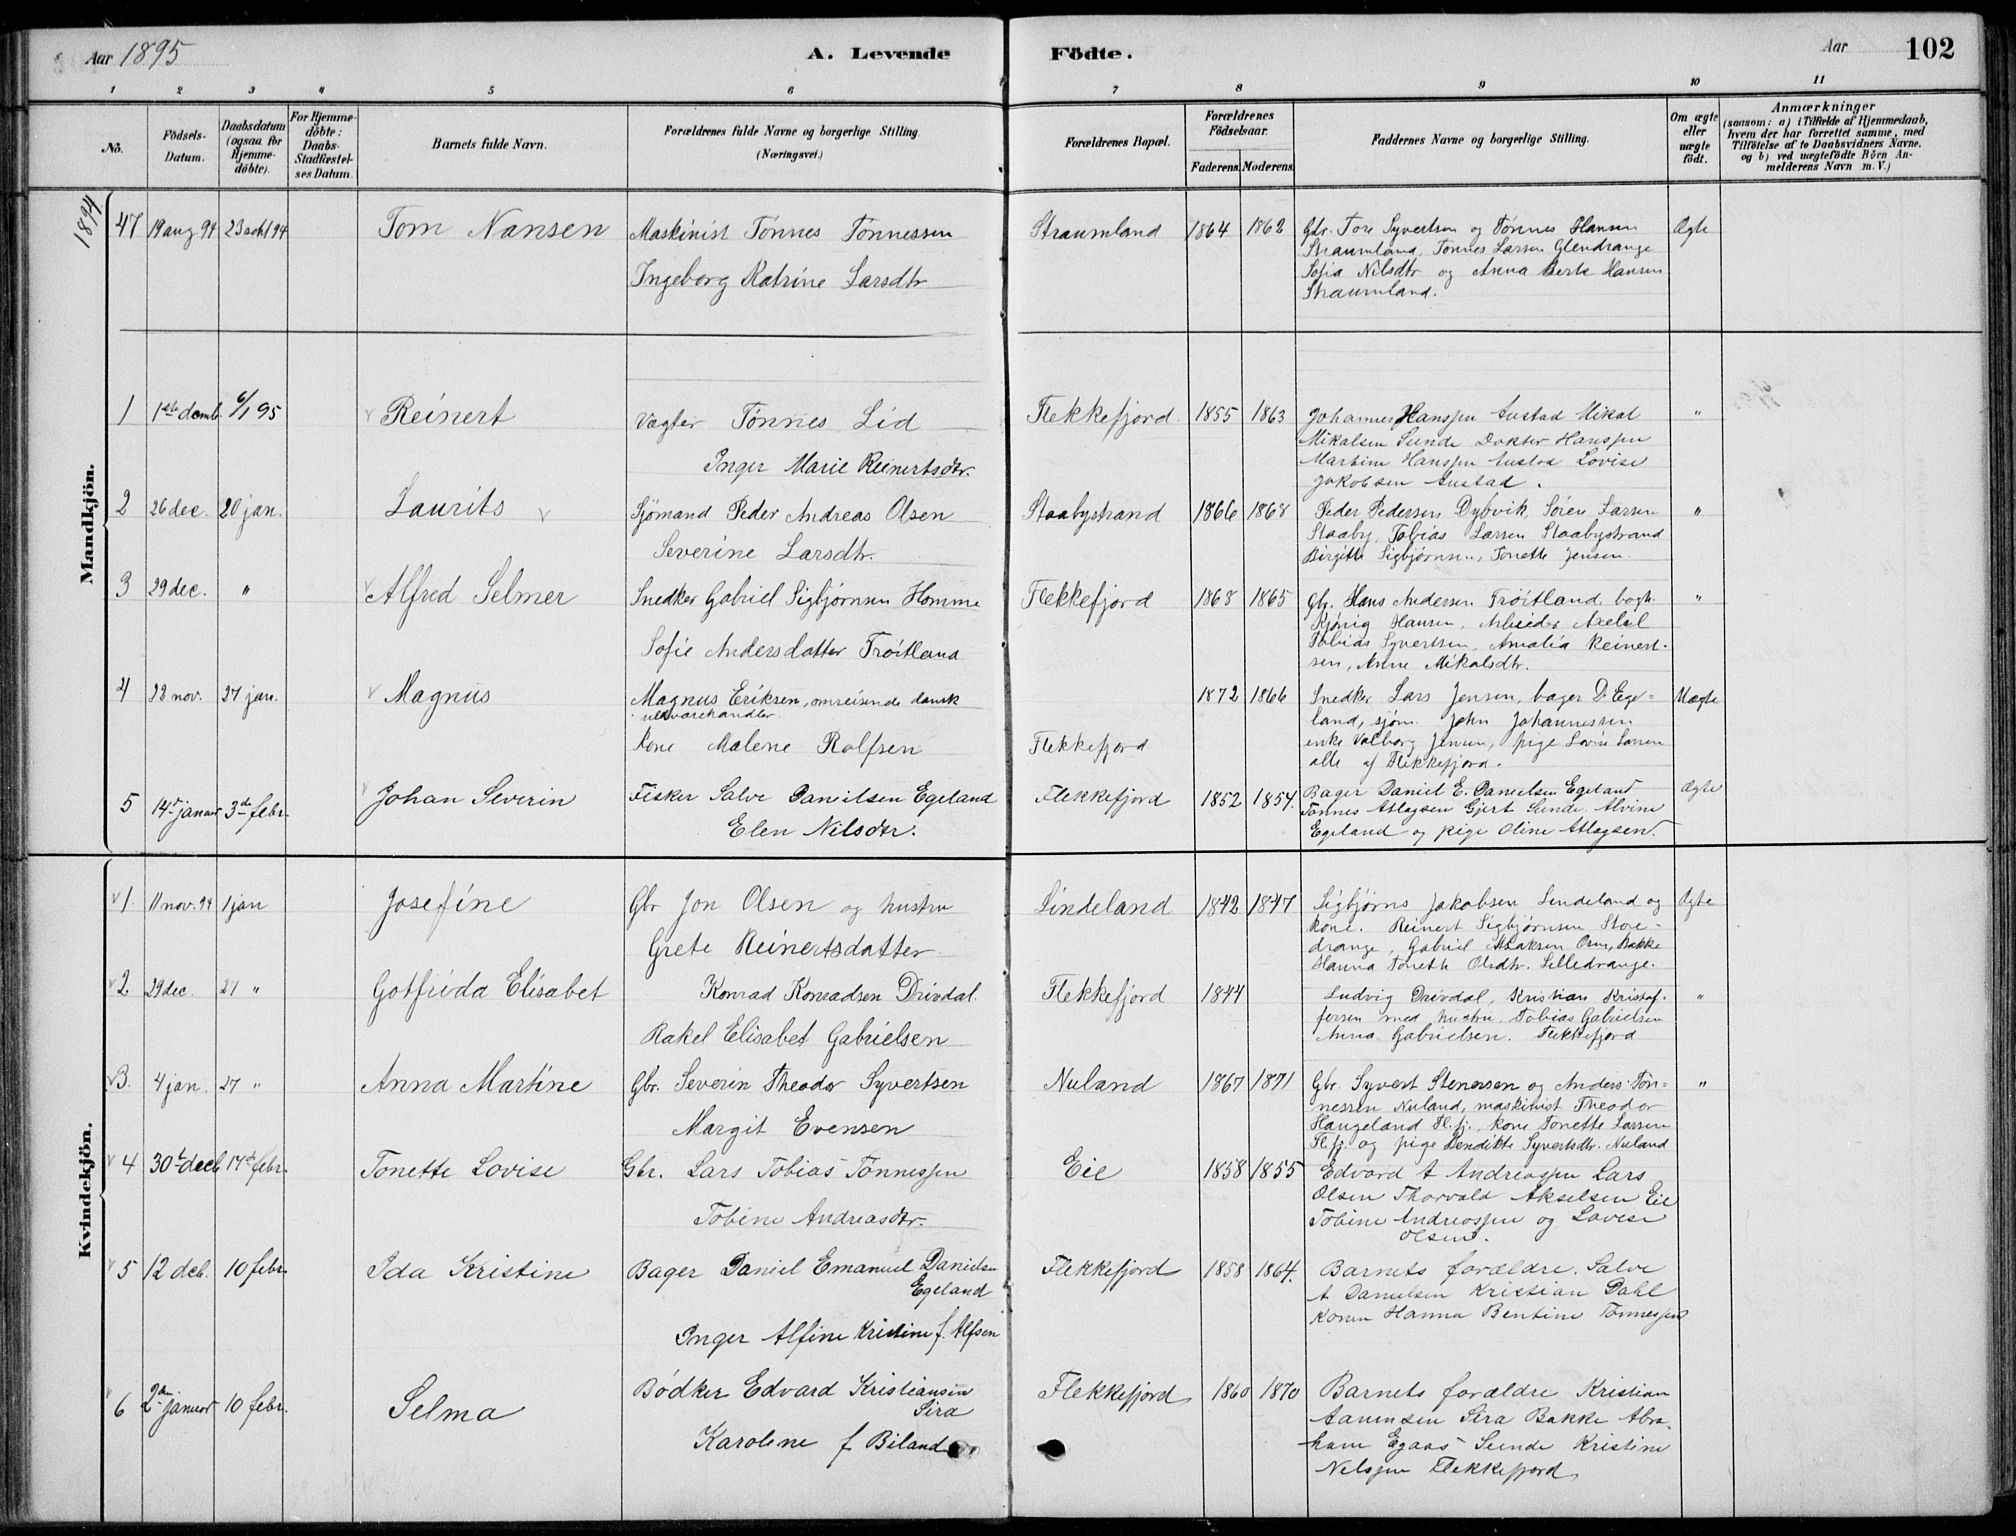 Aar 1895
A. Levende
Födte.
Aar
102
1 2 3 4 5 6 7 8 9 10 11
No.
Födsels-Datum.
Daabsdatum (ogsaa for Hjemme-döbte).
For Hjemme-döbte: Daabs-Stadfæstel-ses Datum.
Barnets fulde Navn.
Forældrenes fulde Navne og borgerlige Stilling. (Næringsvei.)
Forældrenes Bopæl.
Forældrenes Födselsaar.
Faderens. Moderens.
Faddernes Navne og borgerlige Stilling.
Om ægte eller uægte födt.
Anmærkninger
(saasom: a) i Tilfælde af Hjemmedaab, hvem der har forrettet samme, med Tilföielse af to Daabsvidners Navne, og b) ved uægtefödte Börn An-melderens Navn m.V.)
1894
Mandkjön.
47 19 aug 94 23 94 Tom Nansen
Maskinist Tónnes Tónnessen
Ingeborg Katrine Larsdtr
Straumland 1864 1862
Gbr. Tore Syvertsen og Tónnes Hansen
Straumland, Tonnes Larsen Glendrange
Sofia Nilsdtr og Anna Berta Hansen
Straumland.
Ægte
1 1ste decmb. 6/1 95 Reinert
Vægter Tónnes Lid
Inger Marie Reinertsdtr.
Flekkefjord. 1855 1863
Johannes Hanssen Austad Mikal
Mikalsen Sunde Hanssen
Martine Hanssen Austad Lovise
Jakobsen Austad.
"
2 26 dec. 20 jan. Laurits
Sjómand Peder Andreas Olsen
Severine Larsdtr.
Staabystrand 1866 1868
Peder Pedersen Dybvik, Sóren Larsen
Staaby, Tobias Larsen Staabystrand
Birgitte Sigbjórnsen, Tonette Jensen.
"
3 29 dec. " Alfred Selmer
Snedker Gabriel Sigbjórnsen Homme
Sofie Andersdatter Tróitland
Flekkefjord 1868 1865
Gbr. Hans Andersen Tróitland, bogh.
Hansen, Arbeider Axelsel
Tobias Syvertsen, Amalia Reinert-
sen, Anne Mikalsdtr.
"
4 23 nov. 27 jan. Magnus
Magnus Eriksen, omreisende dansk
uldvarehandler
kone Malene Rolfsen
Flekkefjord 1872 1866
Snedker Lars Jensen, bager D. Ege-
land, sjóm. John Johannessen
enke Valborg Jensen, pige Lovise Larsen
alle af Flekkefjord.
Uægte
5 14de januar 3de febr. Johan Severin
Fisker Salve Danielsen Egeland
Elen Nilsdtr.
Flekkefjord 1852 1854.
Bager Daniel E. Danielsen Egeland
Tónnes Atlagsen Gjert Sunde. Alvine
Egeland og pige Oline Atlagsen.
Ægte
Kvindekjön.
1. 11 nov. 94 1 jan Josefine
Gbr Jon Olsen og hustru
Grete Reinertsdatter
Lindeland 1842 1847
Sigbjórns Jakobsen Lindeland og
kone. Reinert Sigbjórnsen Store-
drange, Gabriel Aslaksen Osen, Bakke
Hanna Tonette Olsdtr. Lilledrange.
Ægte
2. 29 dec. 27 " Gotfrida Elisabet
Konrad Konradsen Drivdal.
Rakel Elisabet Gabrielsen
Flekkefjord 1844
Ludvig Drivdal, Kristian Kristof-
fersen med hustru. Tobias Gabrielsen
Anna Gabrielsen. Flekkefjord
"
3. 4 jan. 27 " Anna Martine
Gbr. Severin Theodor Syvertsen
Margit Evensen
Nuland 1867 1871
Gbr. Syvert Stenersen og Anders Tón-
nessen Nuland, maskinist Theodor
Haugeland Fl.fj. kone Tonette Larsen
Fl.fj. og pige Bendikte Syvertsdtr. Nuland
"
4 30te decb 17de febr. Tonette Lovise
Gbr. Lars Tobias Tonnessen
Tobine Andreasdtr.
Eie 1858 1855
Edvard A Andreassen Lars
Olsen Thorvald Akselsen Eie
Tobine Andreassen og Lovise
Olsen.
5 12 deb. 10 febr. Ida Kristine
Bager Daniel Emanuel Danielsen
Egeland
Inger Alfine Kristine f. Alfsen
Flekkefjord 1858 1864.
Barnets forældre. Salve
A Danielsen Kristian Dahl
Konen Hanna Bentine Tonnessen
6 2den januar 10 febr. Selma
Bódker Edvard Kristiansen
Sira
Karoline f Biland
Flekkefjord 1860 1870
Barnets forældre Kristian
Aanensen Sira Bakke Abra-
ham Egaas Sunde Kristine
Nelssen Flekkefjord